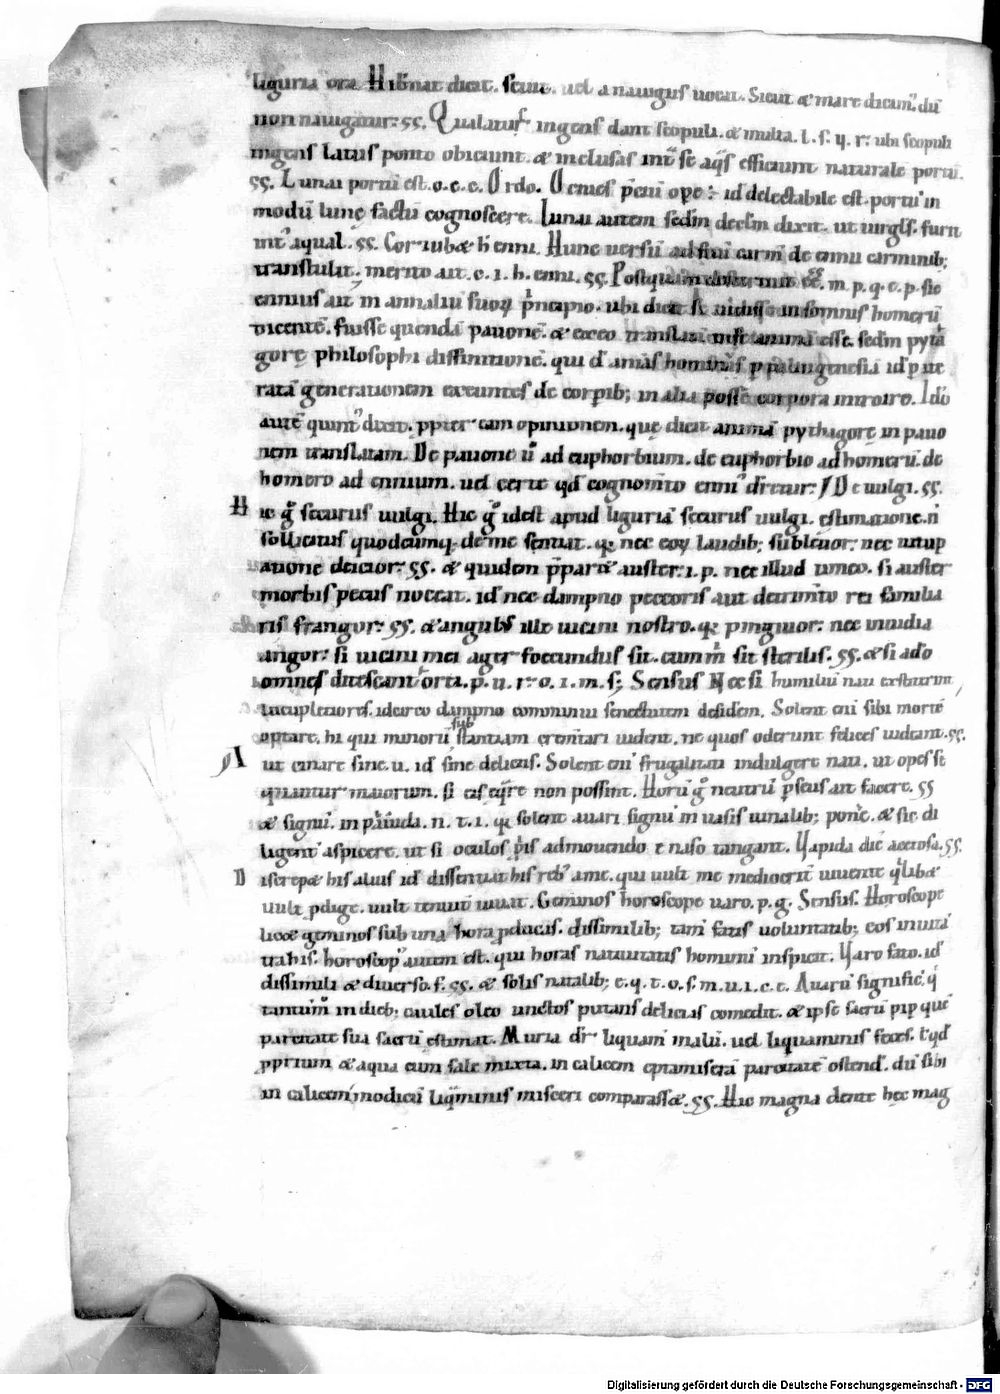 liguria ora Hib̄nat dicit. secus. uel a nauigiis uocat. Sicut & mare dicim᷒. dū
non nauigatur: ss. Qua latus ingens dant scopuli. & multa. l. s. u. r: ubi scopuli
ingens latus ponto obiciunt. & inclusas int̄ se aq̄s efficiunt naturale portū.
ss. Lunai portū est. o. c. c. Ordo. O ciues p̄ciū ope: id delectabile est. portū in
modū lunę factū cognoscere. Lunai autem sedm̄ declin̄ dixit. ut uirgl̄s. furit
int᷒ aquai. ss. Cor iub& h̄ enni. Hunc uersū ad suū carm̄ de ennii carminib;
transtulit. merito ait. c. i. h. enni. ss. Postquam destertuit ēē. m. p. q. e. p. sic
ennius ait in annaliū suoꝝ p̄ncipio. ubi dicit se uidisse in somnis homerū
dicentē. fuisse quendā pauonē. & ex eo translatā in se animā esse. sedm̄ pyta
gorę philosophi diffinitionē. qui d̄ aīas hominū p palingenesiā id p ite
ratā generationem exeuntes de corpib; in alia posse corpora introire. Ido
autē quint᷒ dixit. ppter eam opinionem. quę dicit animā pythagorę in pauo
nem translatam. De pauone ū ad euphorbium. de euphorbio ad homerū. de
homero ad ennium. uel certe qd̄ cognom̄to enni᷒ dicetur: De uulgi. ss.
Hic g̊ securus uulgi. Hic g̊ idest apud liguriā securus uulgi. estimatione. n̄
sollicitus quodcumq; de me sentiat. q; nec eoꝝ laudib; subleuor: nec uitup
atione deicior: ss. & quidem p̄parat auster. i. p. nec illud timeo. si auster
morbis pecus noceat. id̄ nec dampno peccoris aut detrim̄to rei familia
ris frangor: ss. & angulus ille uicini nostro. q; pinguior: nec inuidia
angor: si uicini mei ager foecundus sit. cum m̄ sit sterilis. ss. & si adeo
omnes ditescant orti. p. u. r: o. i. m. s; Sensus Nec si humiliū nati exstiterint
locupletiores. idcirco dampno comminui senectutem desidem. Solent eni sibi mortē
optare. hi qui minorū substantiam crem̄tari uident. ne quos oderunt felices uideant. ss.
Aut cenare sine. u. id̄ sine deliciis. Solent eni᷒ frugalitati indulgere nati. ut opes se
quantur maiorum. si eis eq̄re non possint. Horū g̊ neutrū p̄sius ait facere. ss
& signū. in pāuida. n. t. i. q; solent auari signū in uasis uinalib; pone. & sic di
ligent᷒ aspicere. ut si oculos p̄is admouendo e naso tangant. Vapida dic̄ acetosa. ss.
Discrep& his alius id̄ dissentiat his reb᷒ a me. qui uult me mediocrit̄ uiuente q̄libet
uult pdige. uult tenuit̄ uiuat. Geminos horoscope uaro. p. g. Sensus. Horoscope
lic& geminos sub una hora pducis. dissimilib; tam̄ fatis uoluntatib; eos inuita
trahis. horoscop᷒ autem est. qui horas natiuitatis hominū inspicit. Varo fato. id̄
dissimili & diuerso. s. ss. & solis natalib; e. q. t. o. s. m. u. i. c. e. Auarū significē. q̄
tantūm in dieb; caules oleo unctos putans delicias comedit. & ipse sacrū pip que
parcitate sua sacrū estimat. Muria dr̄ liquam̄ malū. uel liquaminis feces. t qd̄
pprium & aqua cum sale mixta. in calicem eptam miserā parcitatē ostend̄. dū sibi
in calicem modicū liq̄minis misceri comparass&. ss. Hic magna dente hec mag
Digitalisierung gefördert durch die Deutsche Forschungsgemeinschaft - DFG